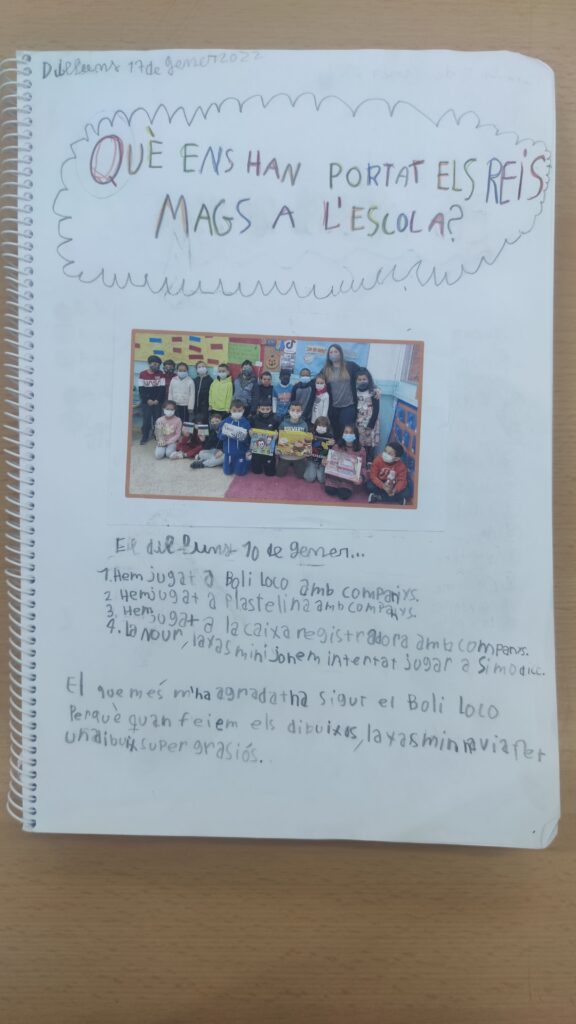 Dilluns 17 de gener 2022
QUÈ ENS HAN PORTAT ELS REIS
MAGS A L'ESCOLA?
El dilluns 10 de gener...
1. Hem jugat a Boli Loco amb companys.
2 Hem jugat a Plastelina amb companys.
3. Hem jugat a la caixa registradora amb companys.
4. la nour, la yasmin i jo hem intentat jugar a Simo dice.
El que més m'ha agradat ha sigut el Boli Loco
Perquè quan feiem els dibuixos, la yasmin havia fet
un dibuix super grasiós.